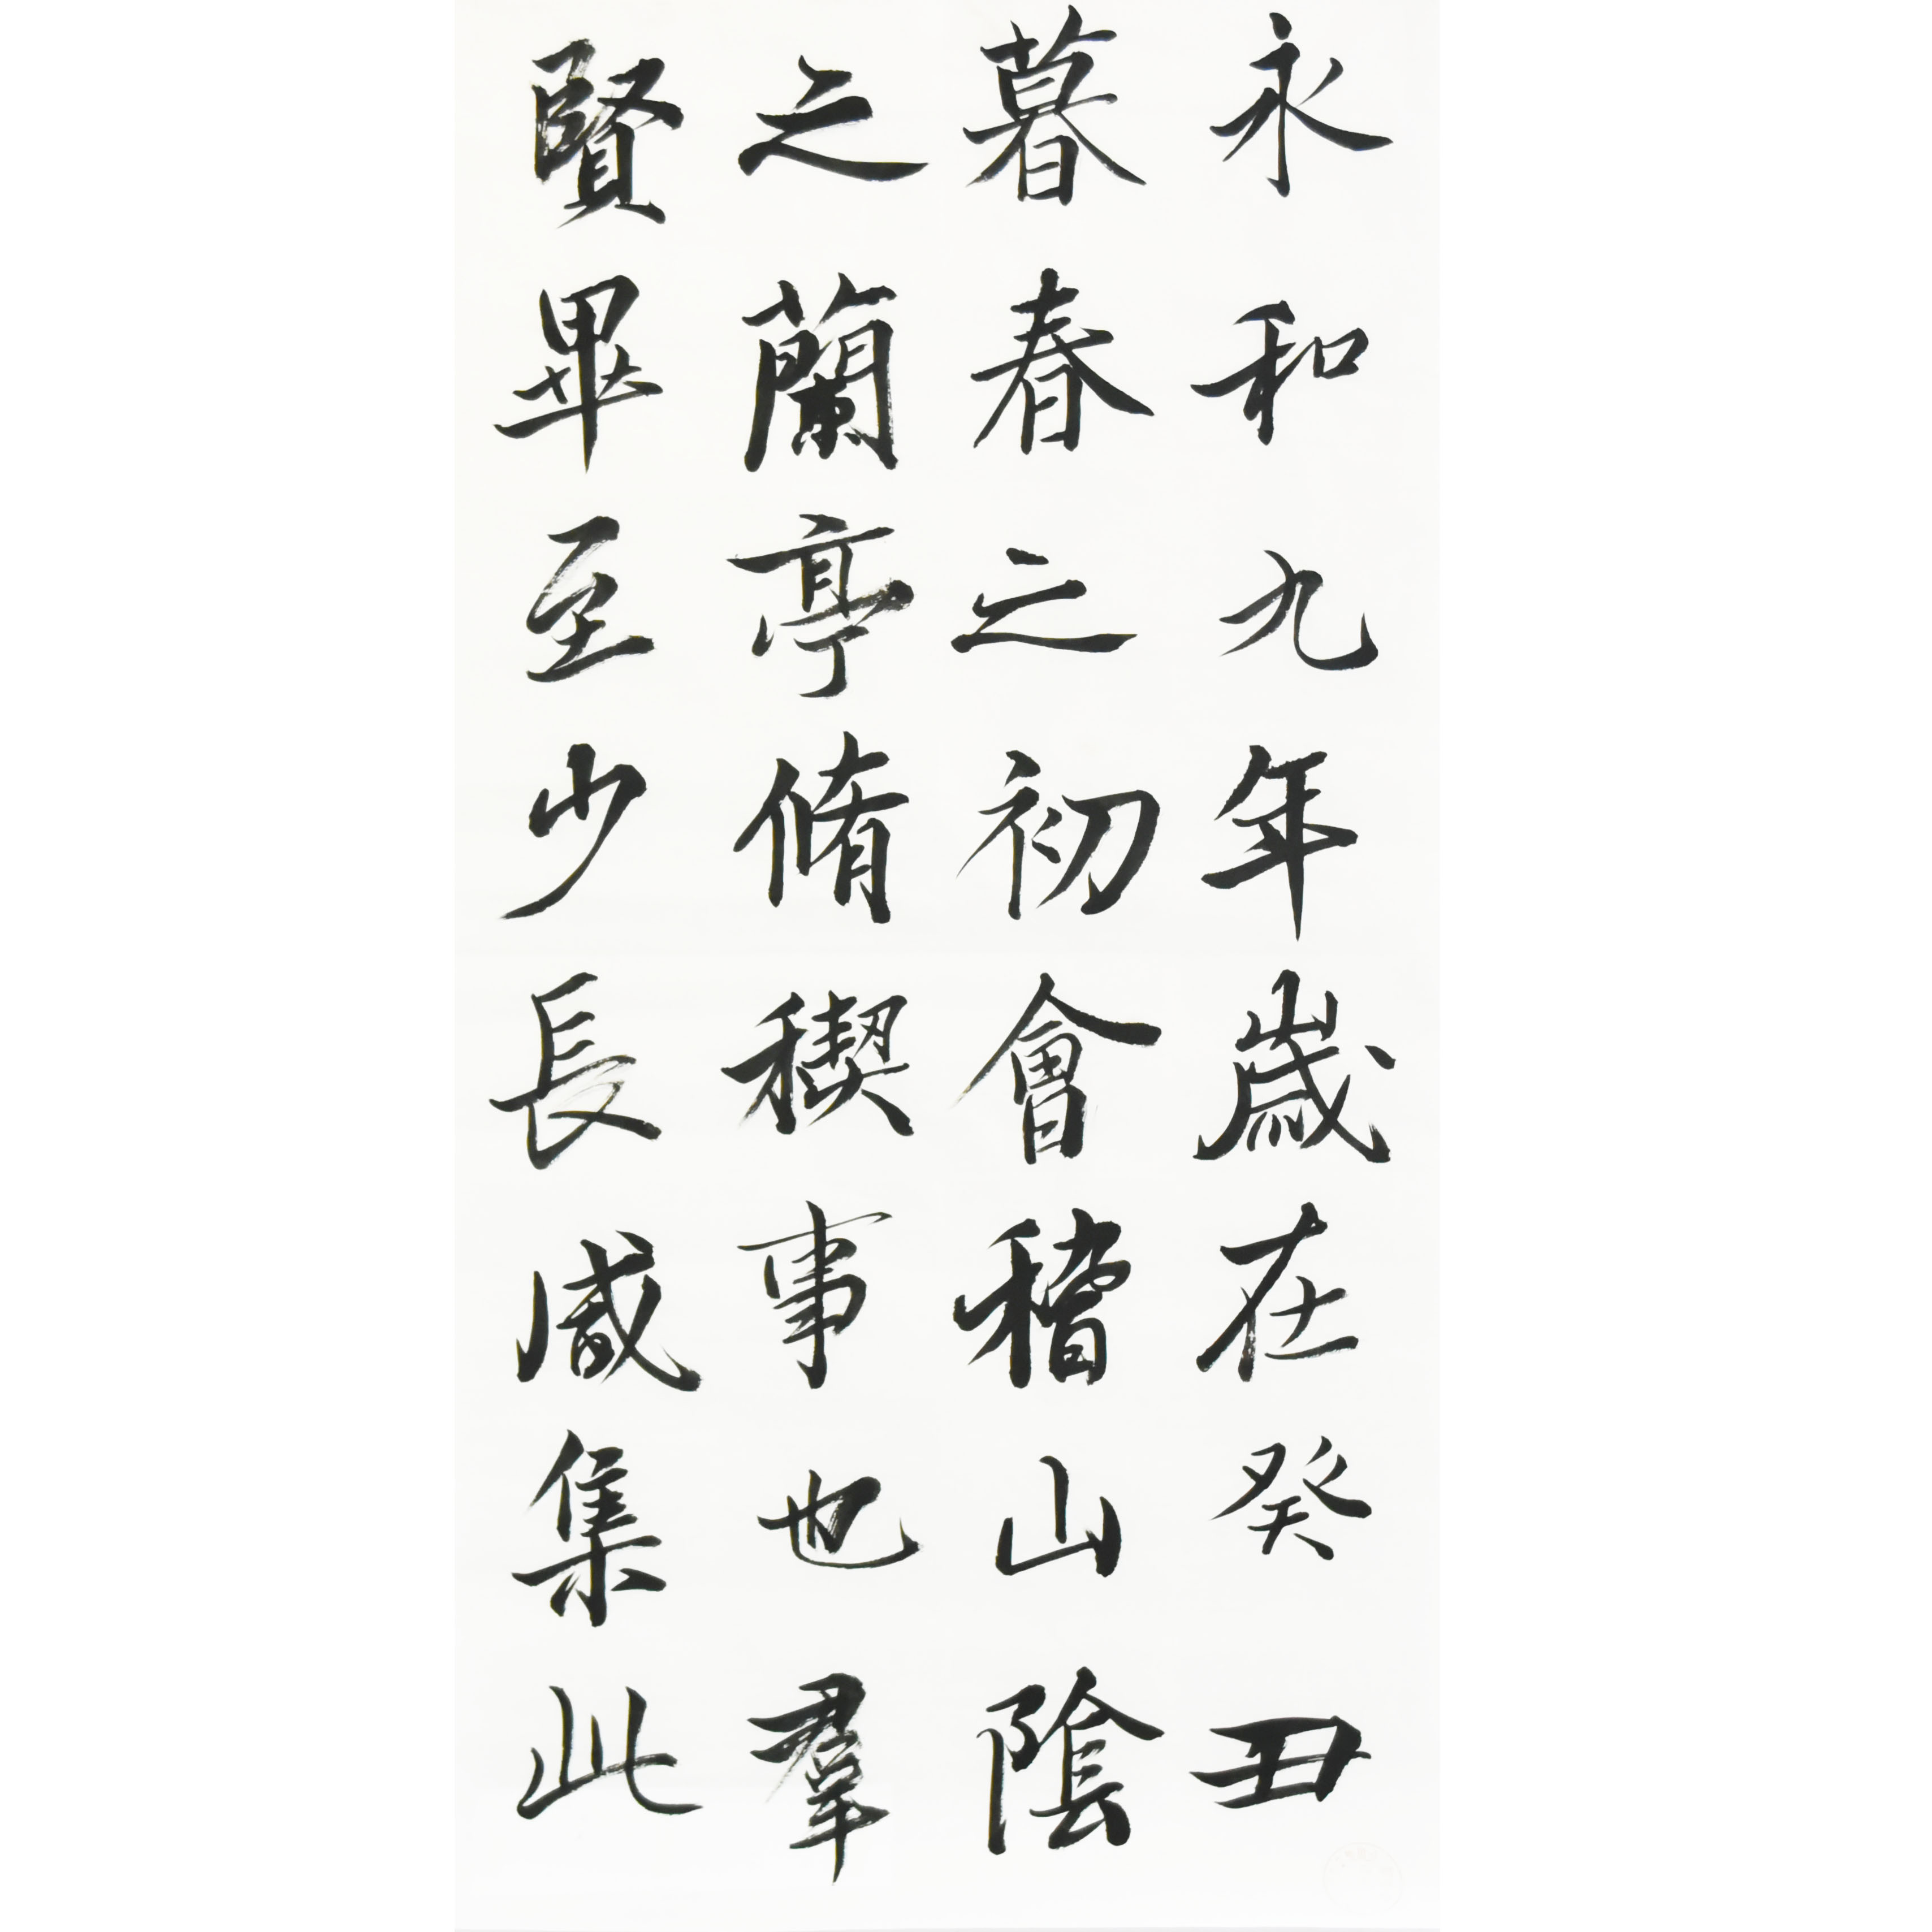 永和九年歲在癸丑
暮春之初會稽山陰
之蘭亭脩稧事也羣
賢畢至少長咸集此